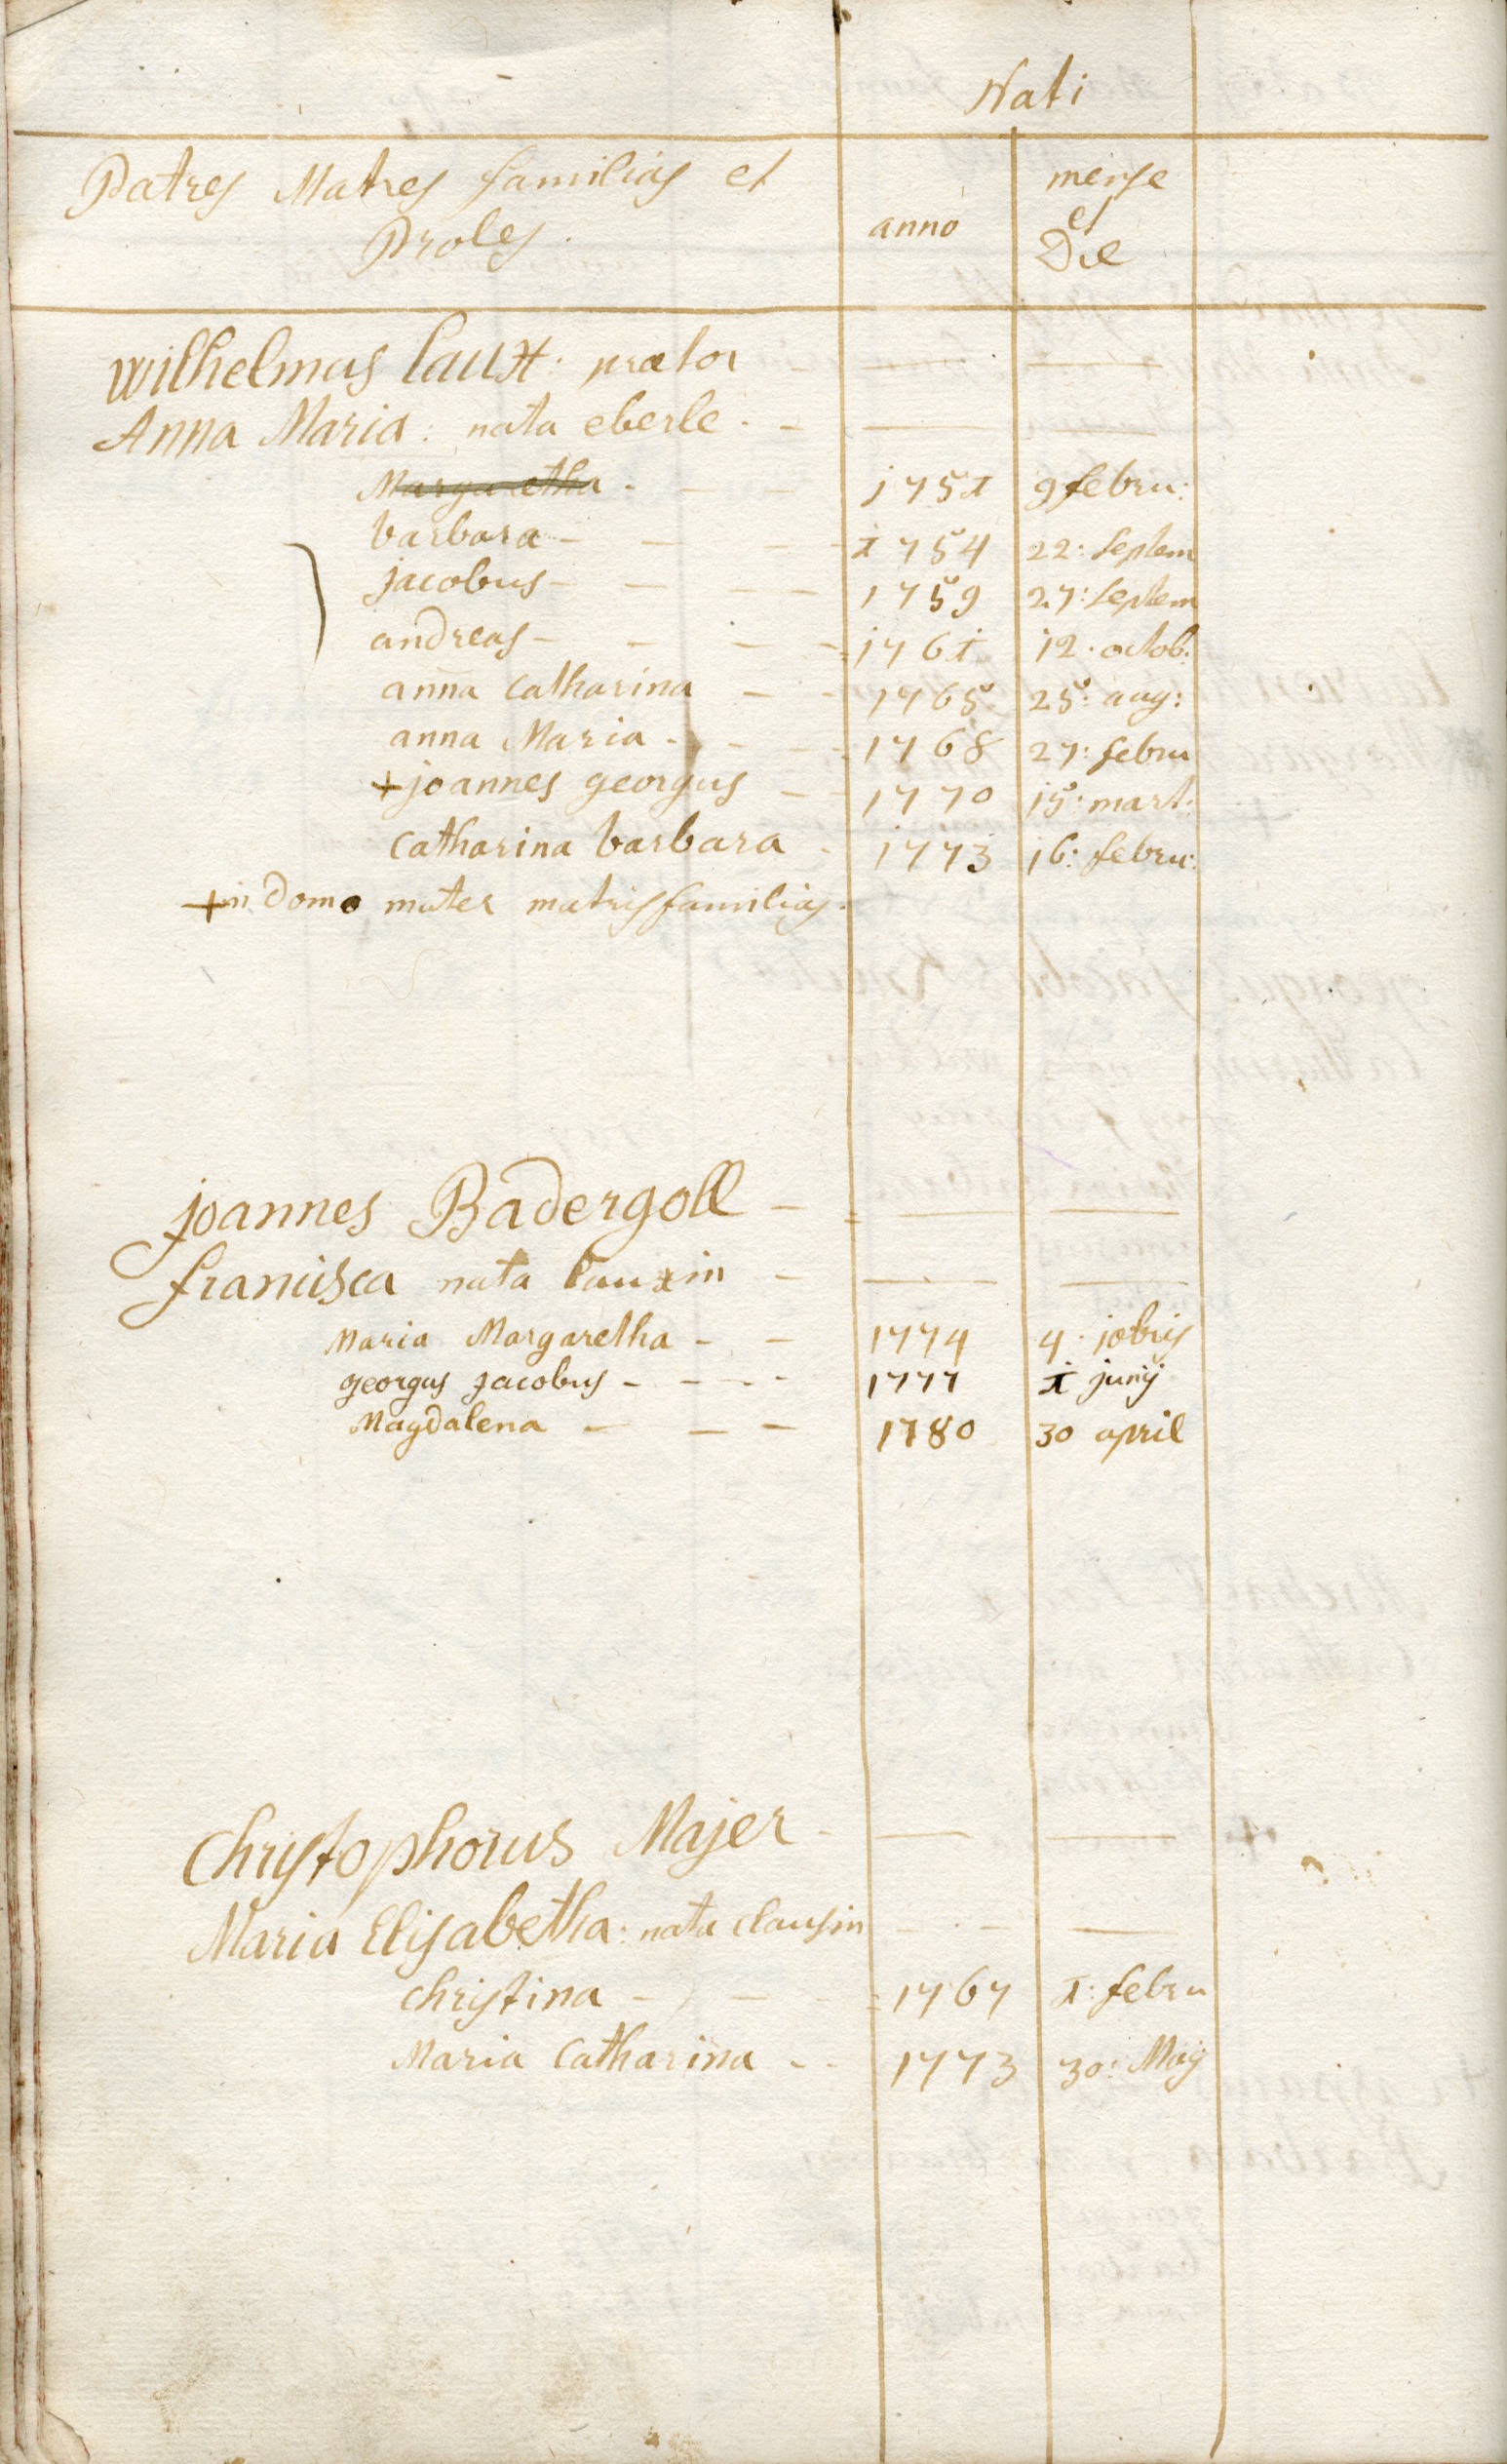 Nati
Patres Matres familias et
Proles.
anno
mense
et
Die
Wilhelmus Laux: prætor
Anna Maria: nata eberle.
Margaretha 1751 9 febru:
barbara 1754 22: Septem
jacobus 1759 27: Septem
andreas 1761 12. octob:
anna Catharina 1765 25: aug:
anna Maria 1768 27: febru
+ joannes georgus 1770 15: mart:
Catharina barbara 1773 16: febru:
+ in domo mater matrisfamilias.
joannes Badergoll
francisca nata Lauxin
Maria Margaretha 1774 4. jobris
georgus jacobus 1777 1 junij
Magdalena 1780 30 april
Christophorus Majer
Maria Elisabetha: nata clausin
christina 1767 1: febru
Maria Catharina 1773 30: Maij